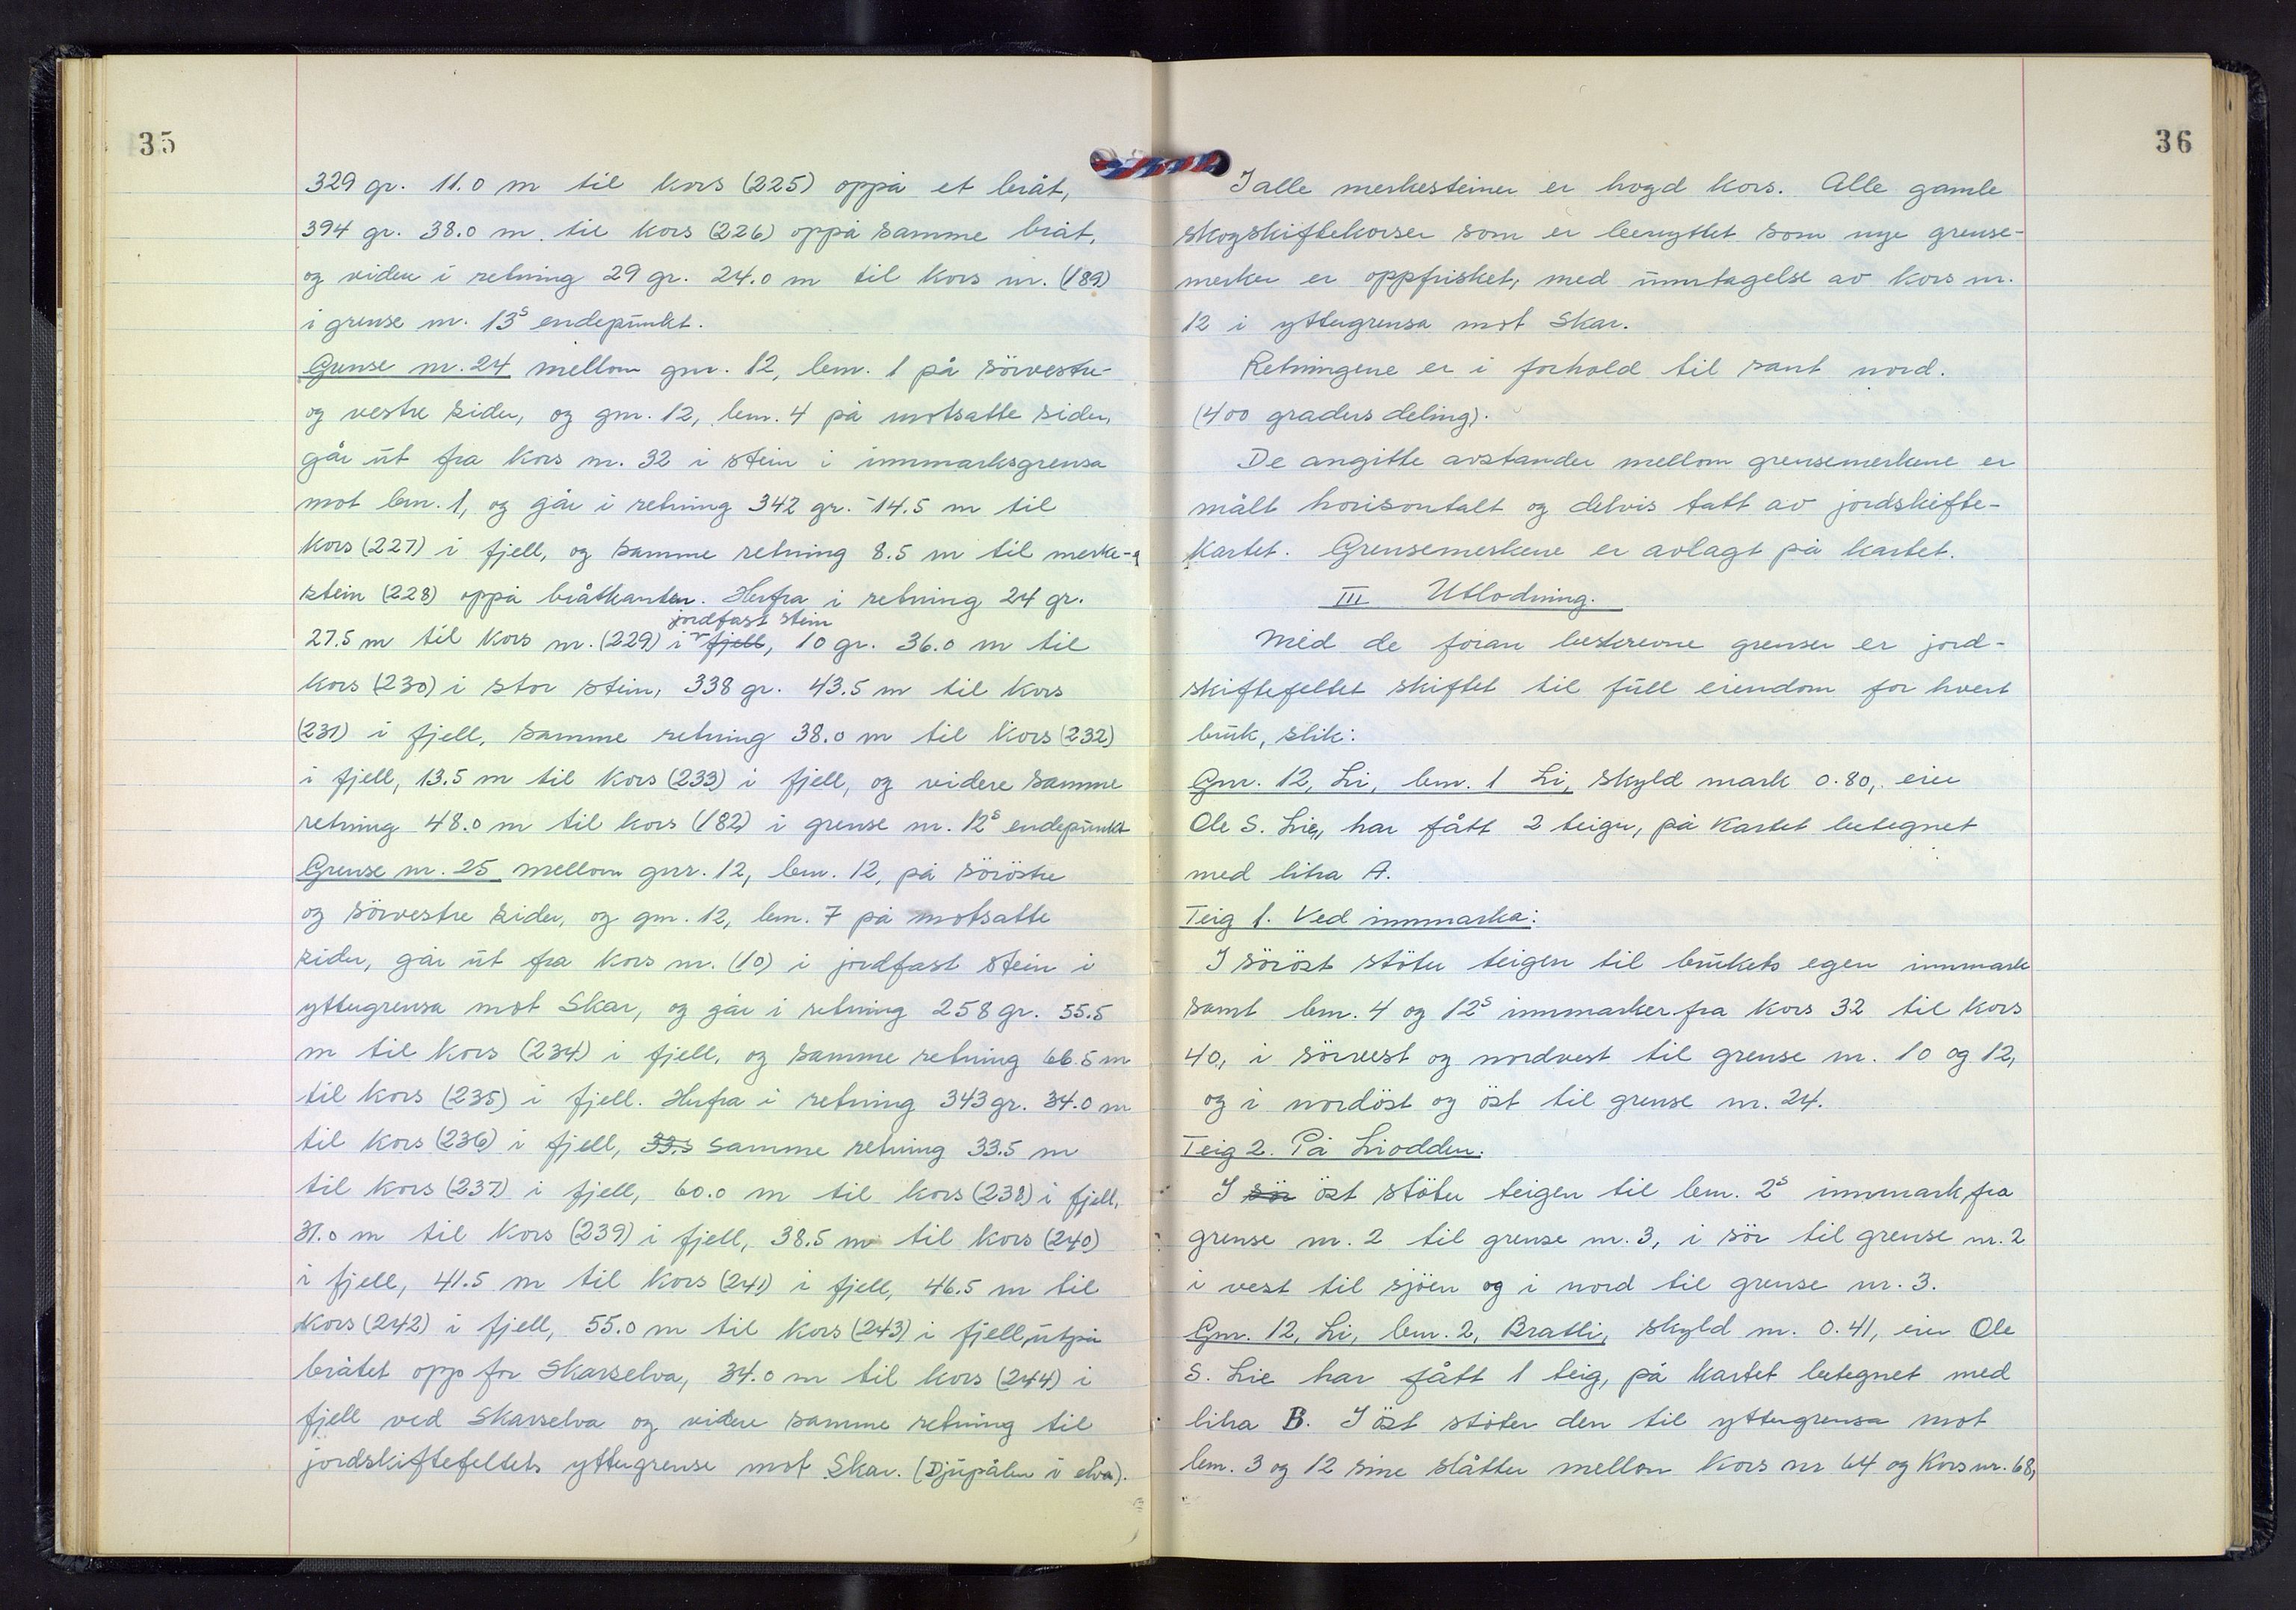 35
329 gr. 11.0 m til kors (225) oppå et bråt,
394 gr. 38.0 m. til kors (226) oppå samme bråt,
og videre i retning 29 gr. 24.0 m til kors nr. (189)
i grense nr. 13s endepunkt.
Grense nr. 24 mellom gnr. 12, bnr. 1 på sörvestre-
og vestre sider, og gnr. 12, bnr. 4 på motsatte sider,
går ut fra kors nr. 32 i stein i innmarksgrensa
mot bnr. 1, og går i retning 342 gr. 14.5 m til
kors (227) i fjell, og samme retning 8.5 m til merke-
stein (228) oppå bråtkanten. Herfra i retning 24 gr.
jordfast stein
27.5 m til kors nr. (229) i fjell, 10 gr. 36.0 m til
kors (230) i stor stein, 338 gr. 43.5 m til kors
(231) i fjell, samme retning 38.0 m til kors (232)
i fjell, 13.5 m til kors (233) i fjell, og videre samme
retning 48.0 m til kors (182) i grense nr. 12s endepunkt
Grense nr. 25 mellom gnr. 12, bnr. 12, på söröstre
og sörvestre sider, og gnr. 12, bnr. 7 på motsatte
sider, går ut fra kors nr. (10) i jordfast stein i
yttergrensa mot Skar, og går i retning 258 gr. 55.5
m til kors (234) i fjell, og samme retning 66.5 m
til kors (235) i fjell. Herfra i retning 343 gr. 34.0 m
til kors (236) i fjell, 33.5 samme retning 33.5 m
til kors (237) i fjell, 60.0 m til kors (238) i fjell,
31.0 m til kors (239) i fjell, 38.5 m til kors (240)
i fjell, 41.5 m til kors (241) i fjell, 46.5 m til
kors (242) i fjell, 55.0 m til kors (243) i fjell, utpå
bråtet opp for Skarselva, 34.0 m til kors (244) i
fjell ved Skarselva og videre samme retning til
jordskiftefeltets yttergrense mot Skar. (Djupålen i elva).
36
I alle merkesteiner er hogd kors. Alle gamle
skogskiftekorser som er benyttet som nye grense-
merker er oppfrisket, med unntagelse av kors nr.
12 i yttergrensa mot Skar.
Retningene er i forhold til sant nord.
(400 graders deling).
De angitte avstander mellom grensemerkene er
målt horisontalt og delvis tatt av jordskifte-
kartet. Grensemerkene er avlagt på kartet.
III Utlodning.
Med de foran beskrevne grenser er jord-
skiftefeltet skiftet til full eiendom for hvert
bruk, slik:
Gnr. 12, Li, bnr. 1 Li, skyld mark 0.80, eier
Ole S. Lie, har fått 2 teiger, på kartet betegnet
med litra A.
Teig 1. Ved innmarka:
I söröst stöter teigen til brukets egen innmark
samt bnr. 4 og 12s innmarker fra kors 32 til kors
40, i sörvest og nordvest til grense nr. 10 og 12,
og i nordöst og öst til grense nr. 24.
Teig 2. På Liodden.
I sör öst stöter teigen til bnr. 2s innmark, fra
grense nr. 2 til grense nr. 3, i sör til grense nr. 2
i vest til sjöen og i nord til grense nr. 3.
Gnr. 12, Li, bnr. 2, Bratli, skyld m. 0.41, eier Ole
S. Lie har fått 1 teig, på kartet betegnet med
litra B. I öst stöter den til yttergrensa mot
bnr. 3 og 12 sine slåtter mellom kors nr 64 og kors nr. 68,